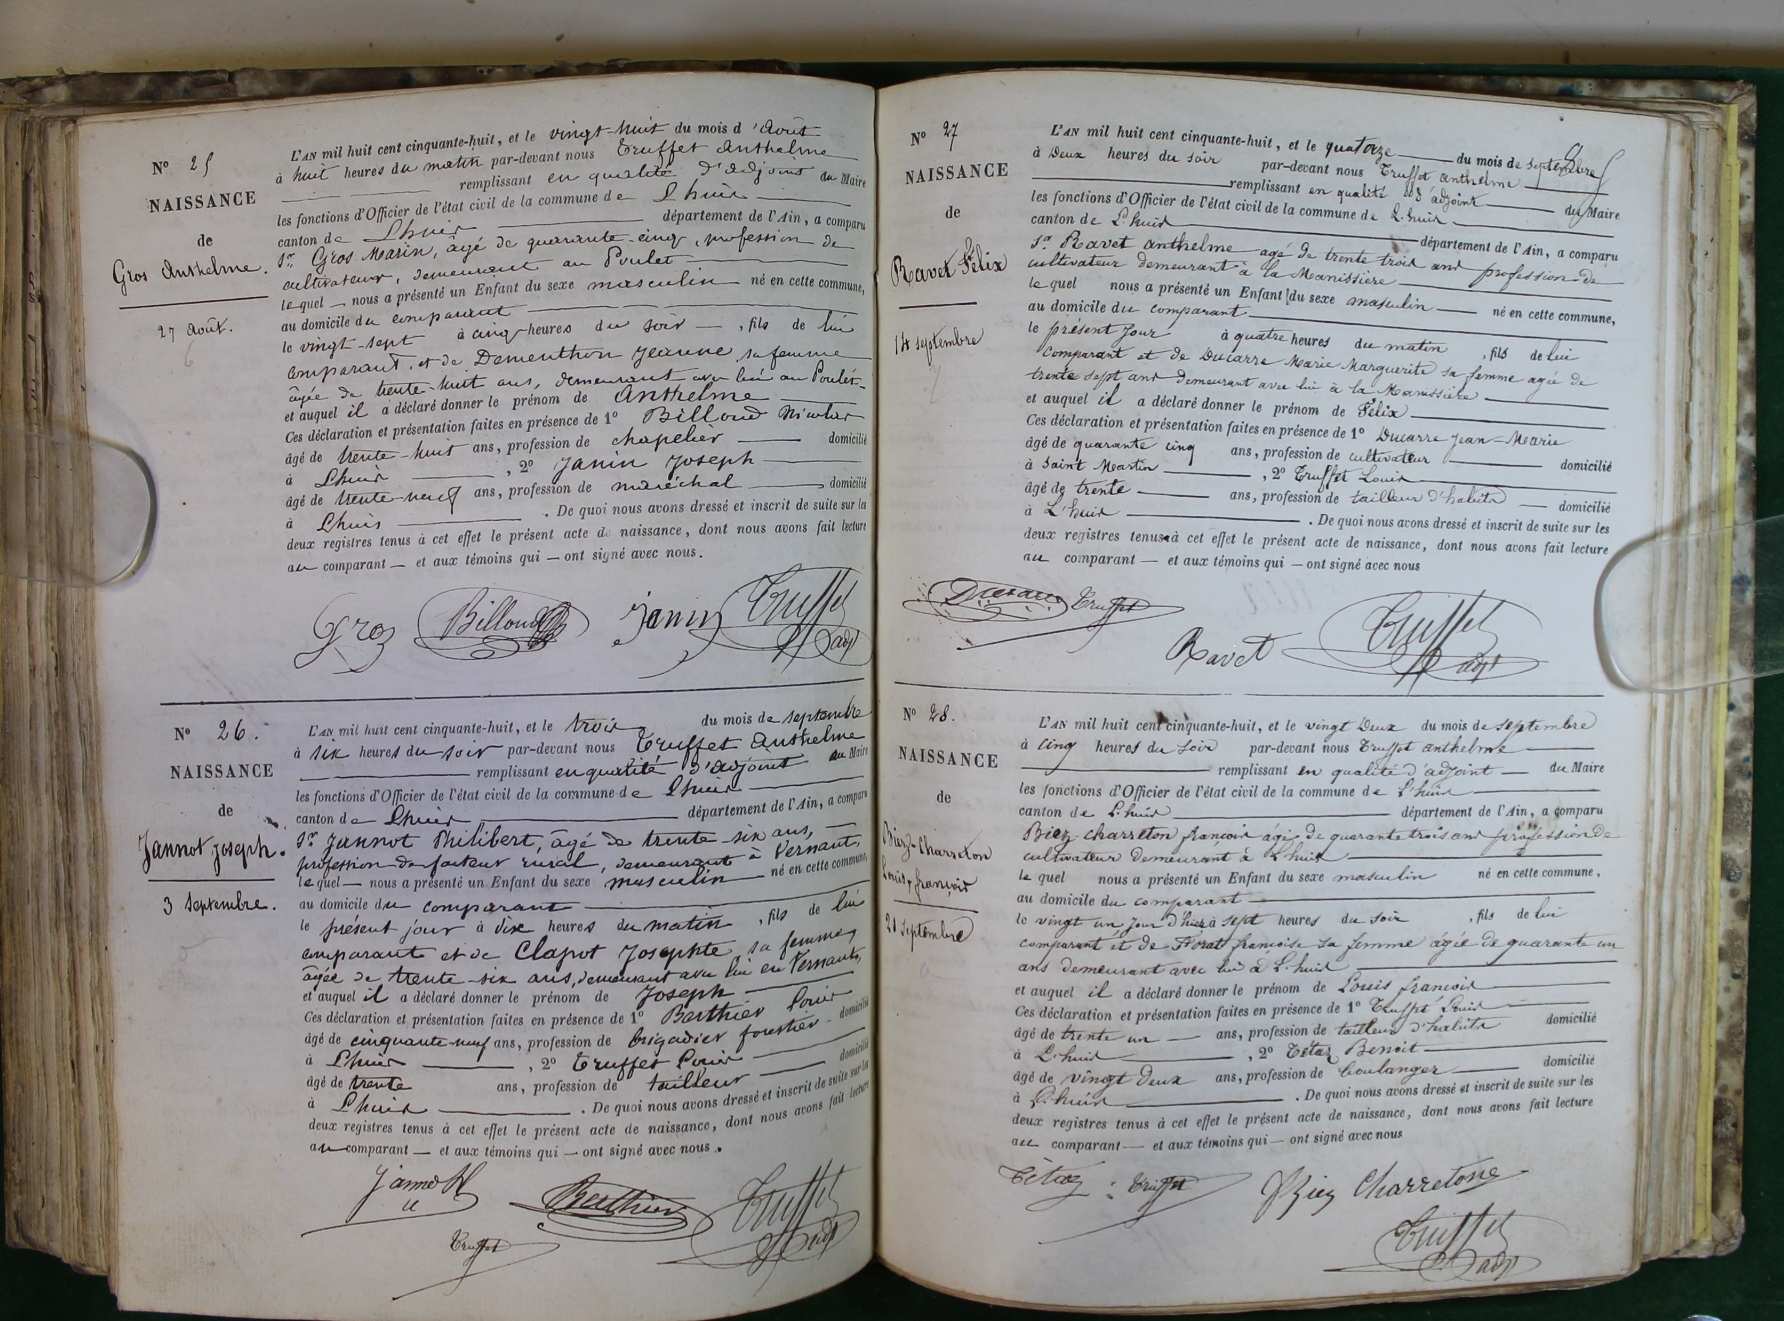 N° 25
NAISSANCE
de
Gros Anthelme.
27 août.
L'AN mil huit cent cinquante-huit, et le vingt-huit du mois d'août
à huit heures du matin par-devant nous Truffet Anthelme
remplissant en qualité d'adjoint au Maire
les fonctions d'Officier de l'état civil de la commune de Lhuis
canton de Lhuis département de l'Ain, a comparu
Sr Gros Marin, âgé de quarante-cinq, profession de
cultivateur, demeurant au Poulet
lequel nous a présenté un Enfant du sexe masculin né en cette commune,
au domicile du comparant
le vingt-sept à cinq heures du soir, fils de lui
comparant, et de Dementhon Jeanne sa femme
âgée de trente-huit ans, demeurant avec lui au Poulet
et auquel il a déclaré donner le prénom de Anthelme
Ces déclaration et présentation faites en présence de 1° Billoud Nicolas
âgé de trente-huit ans, profession de chapelier domicilié
à Lhuis, 2° Janin Joseph
âgé de trente-neuf ans, profession de maréchal domicilié
à Lhuis. De quoi nous avons dressé et inscrit de suite sur les
deux registres tenus à cet effet le présent acte de naissance, dont nous avons fait lecture
au comparant — et aux témoins qui — ont signé avec nous.
Gros Billoud Janin Truffet adjt
N° 26.
NAISSANCE
de
Jannot Joseph.
3 septembre.
L'AN mil huit cent cinquante-huit, et le trois du mois de septembre
à six heures du soir par-devant nous Truffet Anthelme
remplissant en qualité d'adjoint au Maire
les fonctions d'Officier de l'état civil de la commune de Lhuis
canton de Lhuis département de l'Ain, a comparu
Sr Jannot Philibert, âgé de trente-six ans,
profession de facteur rural, demeurant à Vernant,
lequel — nous a présenté un Enfant du sexe masculin né en cette commune,
au domicile du comparant
le présent jour à dix heures du matin, fils de lui
comparant et de Clapot Josephte, sa femme,
âgée de trente-six ans, demeurant avec lui en Vernant,
et auquel il a déclaré donner le prénom de Joseph
Ces déclaration et présentation faites en présence de 1° Berthier Louis
âgé de cinquante-neuf ans, profession de brigadier forestier domicilié
à Lhuis, 2° Truffet Louis
âgé de trente ans, profession de tailleur domicilié
à Lhuis. De quoi nous avons dressé et inscrit de suite sur les
deux registres tenus à cet effet le présent acte de naissance, dont nous avons fait lecture
au comparant — et aux témoins qui — ont signé avec nous.
Jannot Berthier Truffet adjt
Truffet
N° 27
NAISSANCE
de
Ravet Félix
14 septembre
L'AN mil huit cent cinquante-huit, et le quatorze du mois de septembre
à Deux heures du soir par-devant nous Truffet anthelme
remplissant en qualité d'adjoint du Maire
les fonctions d'Officier de l'état civil de la commune de L'huis
canton de L'huis département de l'Ain, a comparu
Sr Ravet anthelme agé de trente trois ans profession de
cultivateur demeurant à la Manissière
lequel nous a présenté un Enfant du sexe masculin né en cette commune,
au domicile du comparant
le présent jour à quatre heures du matin, fils de lui
comparant et de Ducarre Marie Marguerite sa femme agée de
trente sept ans demeurant avec lui à la Manissière
et auquel il a déclaré donner le prénom de Félix
Ces déclaration et présentation faites en présence de 1° Ducarre Jean-Marie
âgé de quarante cinq ans, profession de cultivateur domicilié
à Saint Martin, 2° Truffet Louis
âgé de trente ans, profession de tailleur d'habits domicilié
à L'huis. De quoi nous avons dressé et inscrit de suite sur les
deux registres tenus à cet effet le présent acte de naissance, dont nous avons fait lecture
au comparant — et aux témoins qui — ont signé avec nous
Ducarre Truffet
Ravet Truffet adjt
N° 28.
NAISSANCE
de
Biez-Charreton
Louis, françois
21 septembre
L'AN mil huit cent cinquante-huit, et le vingt Deux du mois de septembre
à cinq heures du soir par-devant nous Truffet anthelme
remplissant en qualité d'adjoint du Maire
les fonctions d'Officier de l'état civil de la commune de L'huis
canton de L'huis département de l'Ain, a comparu
Biez-charreton françois âgé de quarante trois ans profession de
cultivateur demeurant à L'huis
lequel nous a présenté un Enfant du sexe masculin né en cette commune,
au domicile du comparant
le vingt un jour d'hier à sept heures du soir, fils de lui
comparant et de Florat françoise sa femme âgée de quarante un
ans demeurant avec lui à L'huis
et auquel il a déclaré donner le prénom de Louis françois
Ces déclaration et présentation faites en présence de 1° Truffet Louis
âgé de trente un ans, profession de tailleur d'habits domicilié
à L'huis, 2° Tétaz Benoit
âgé de vingt Deux ans, profession de boulanger domicilié
à L'huis. De quoi nous avons dressé et inscrit de suite sur les
deux registres tenus à cet effet le présent acte de naissance, dont nous avons fait lecture
au comparant — et aux témoins qui — ont signé avec nous
Tétaz Truffet Biez Charretone
Truffet adjt